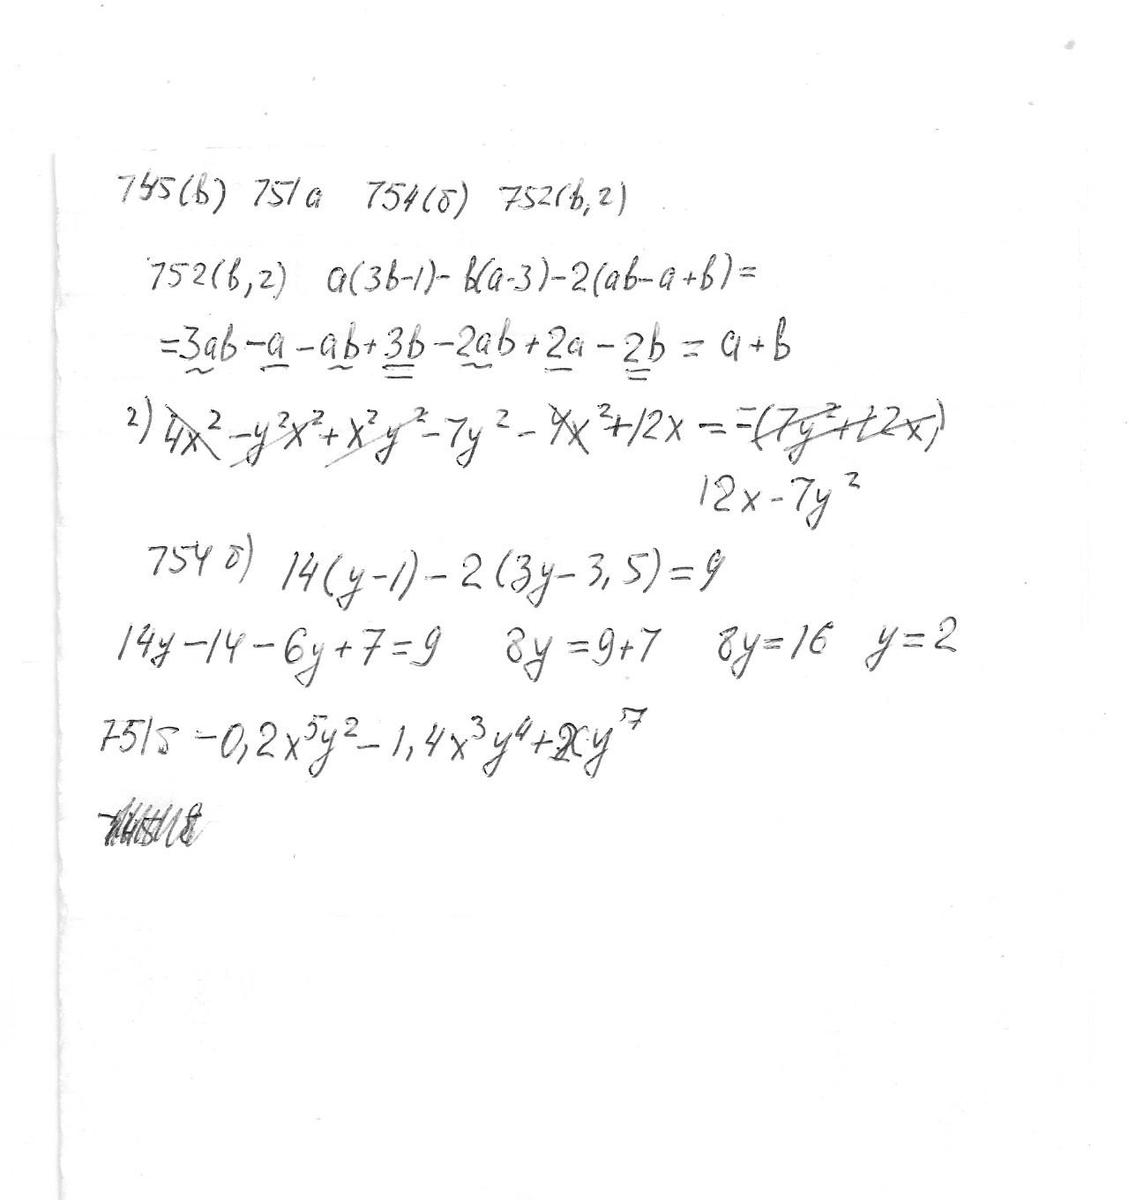 745(в) 751а 754(б) 752(в,г)
752(в,г) a(3b-1)-b(a-3)-2(ab-a+b)=
=3ab-a-ab+3b-2ab+2a-2b=a+b
г) 4x²-y²x²+x²y²-7y²-4x²+12x==-(7y²+12x)
12x-7y²
754 б) 14(y-1)-2(3y-3,5)=9
14y-14-6y+7=9 8y=9+7 8y=16 y=2
751б -0,2x⁵y²-1,4x³y⁴+2xy⁷